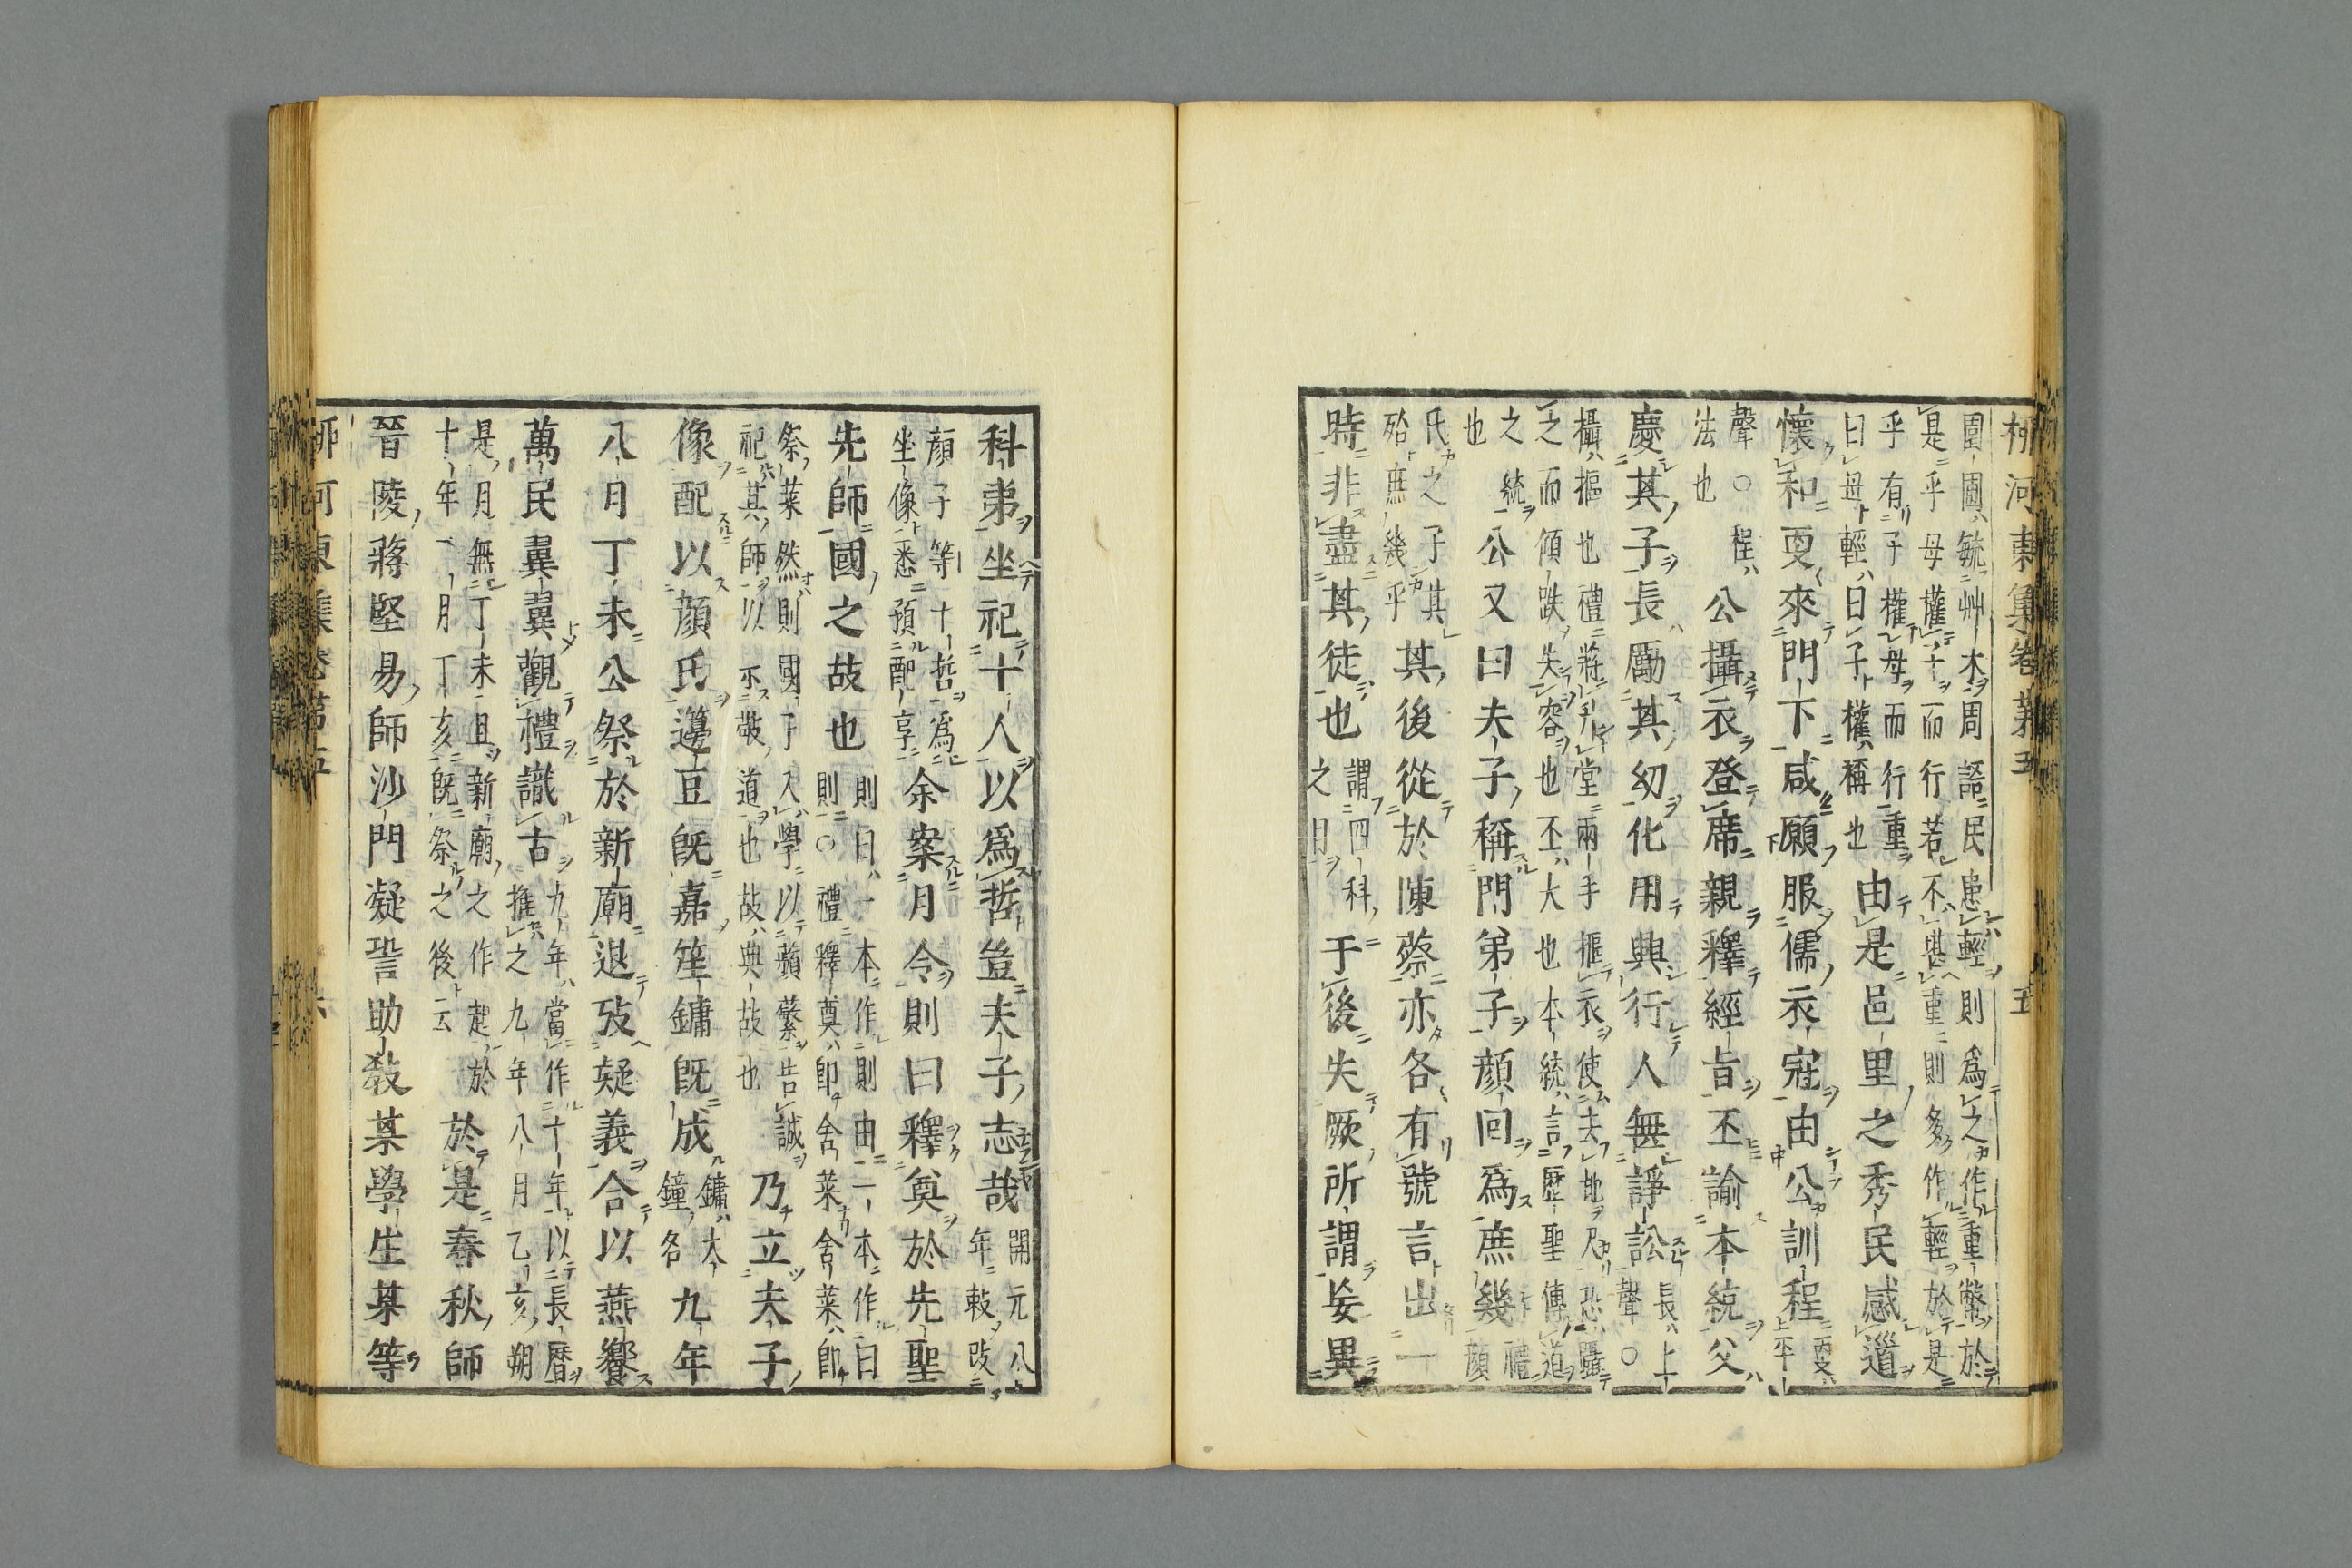 柳河東集卷第五　五
園囿毓艸木周語民患輕則爲之作重幣於
是乎母權子而行若不堪重則多作輕於是
乎有子權母而行重
曰母輕曰子權稱也
由是邑里之秀民感道
懷和更來門下咸願服儒衣冠由公訓程
丙文
上平
聲○桯
法也
公攝衣登席親釋經旨丕諭本統父
慶其子長勵其幼化用興行人無諍訟
長上
聲○
攝摳也禮將升堂兩手摳衣使去地尺恐躡
之而傾跌失容也丕大也本統言歷聖傳道
之統
也
公又曰夫子稱門弟子顏回爲庶幾
禮
顏
氏之子其
殆庶幾乎
其後從於陳蔡亦各有號言出一
時非盡其徒也
謂四科
之目
于後失厥所謂妄異
科弟坐祀十人以爲哲豈夫子志哉
開元八
年敕改
顏子等十哲爲
坐像悉預配享
余案月令則曰釋奠於先聖
先師國之故也
則曰一本作則由一本作曰
則○禮釋奠卽舍菜舍菜卽
祭菜然則國子入學以蘋蘩告誠
祀其師以示敬道也故典故也
乃立夫子
像配以顏氏籩豆旣嘉笙鏞旣成
鏞大
鐘名
九年
八月丁未公祭於新廟退攷疑義合以燕饗
萬民翼翼觀禮識古
九年當作十年以長曆
推之九年八月乙亥朔
是月無丁未且新廟之作起於
十年二月丁亥旣祭之後云
於是春秋師
晉陵蔣堅易師沙門凝助教某學生某等
柳河東集卷第五　六